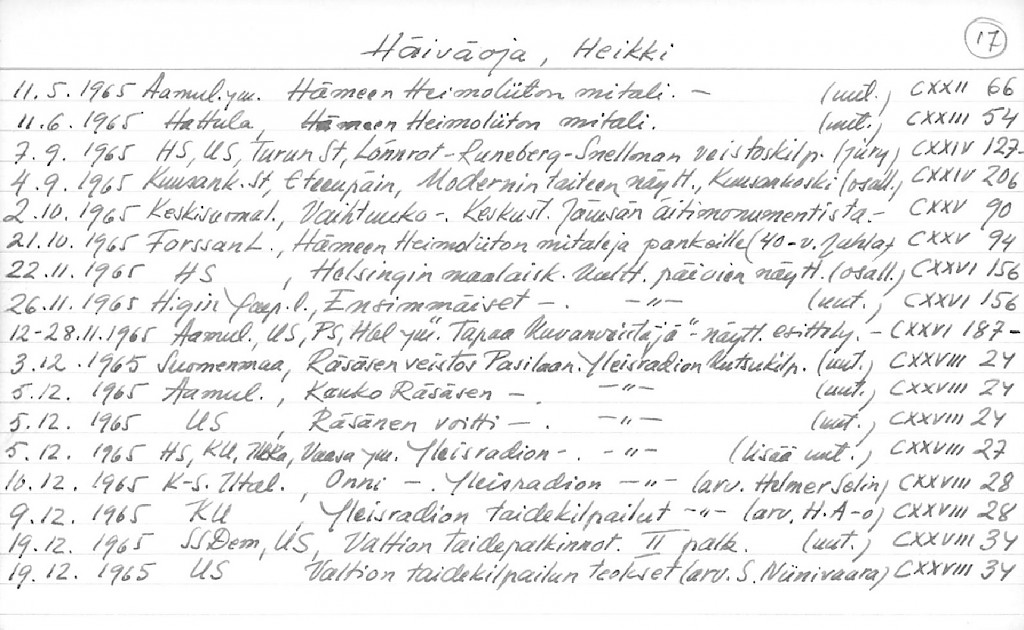 17
Häiväoja, Heikki
11.5.1965 Aamul. ym. Hämeen Heimoliiton mitali. - (uut.) CXXII 66
11.6.1965 Hattula, Hämeen Heimoliiton mitali. (uut.) CXXIII 54
7.9.1965 HS, US, Turun St, Lönnrot-Runeberg-Snellman veistoskilp. (jury) CXXIV 127-
4.9.1965 Kuusank. St, Eteenpäin, Modernin taiteen näytt., Kuusankoski (osall.) CXXIV 206
2.10.1965 Keskisuomal., Vaihtuuko -. Keskust. Jämsän äitimonumentista.- CXXV 90
21.10.1965 Forssan L., Hämeen Heimoliiton mitaleja pankeille (40-v. juhla) CXXV 94
22.11.1965 HS, Helsingin maalaisk. kultt. päivien näytt. (osall.) CXXVI 156
26.11.1965 H:gin ymp. l., Ensimmäiset -. -"- (uut.) CXXVI 156
12-28.11.1965 Aamul., US, PS, Hbl ym. "Tapaa kuvanveistäjä"-näytt. esittely. - CXXVI 187-
3.12.1965 Suomenmaa, Räsäsen veistos Pasilaan. Yleisradion kutsukilp. (uut.) CXXVIII 24
5.12.1965 Aamul., Kauko Räsäsen -. -"- (uut.) CXXVIII 24
5.12.1965 US, Räsänen voitti -. -"- (uut.) CXXVIII 24
5.12.1965 HS, KU, Vaasa ym. Yleisradion -. -"- (lisää uut.) CXXVIII 27
16.12.1965 K-S. Iltal., Onni -. Yleisradion -"- (arv. Hilmer Selin) CXXVIII 28
9.12.1965 KU, Yleisradion taidekilpailut -"- (arv. H.A-o) CXXVIII 28
19.12.1965 SSDem, US, Valtion taidepalkinnot. II palk. (uut.) CXXVIII 34
19.12.1965 US Valtion taidekilpailun teokset (arv. S. Niinivaara) CXXVIII 34